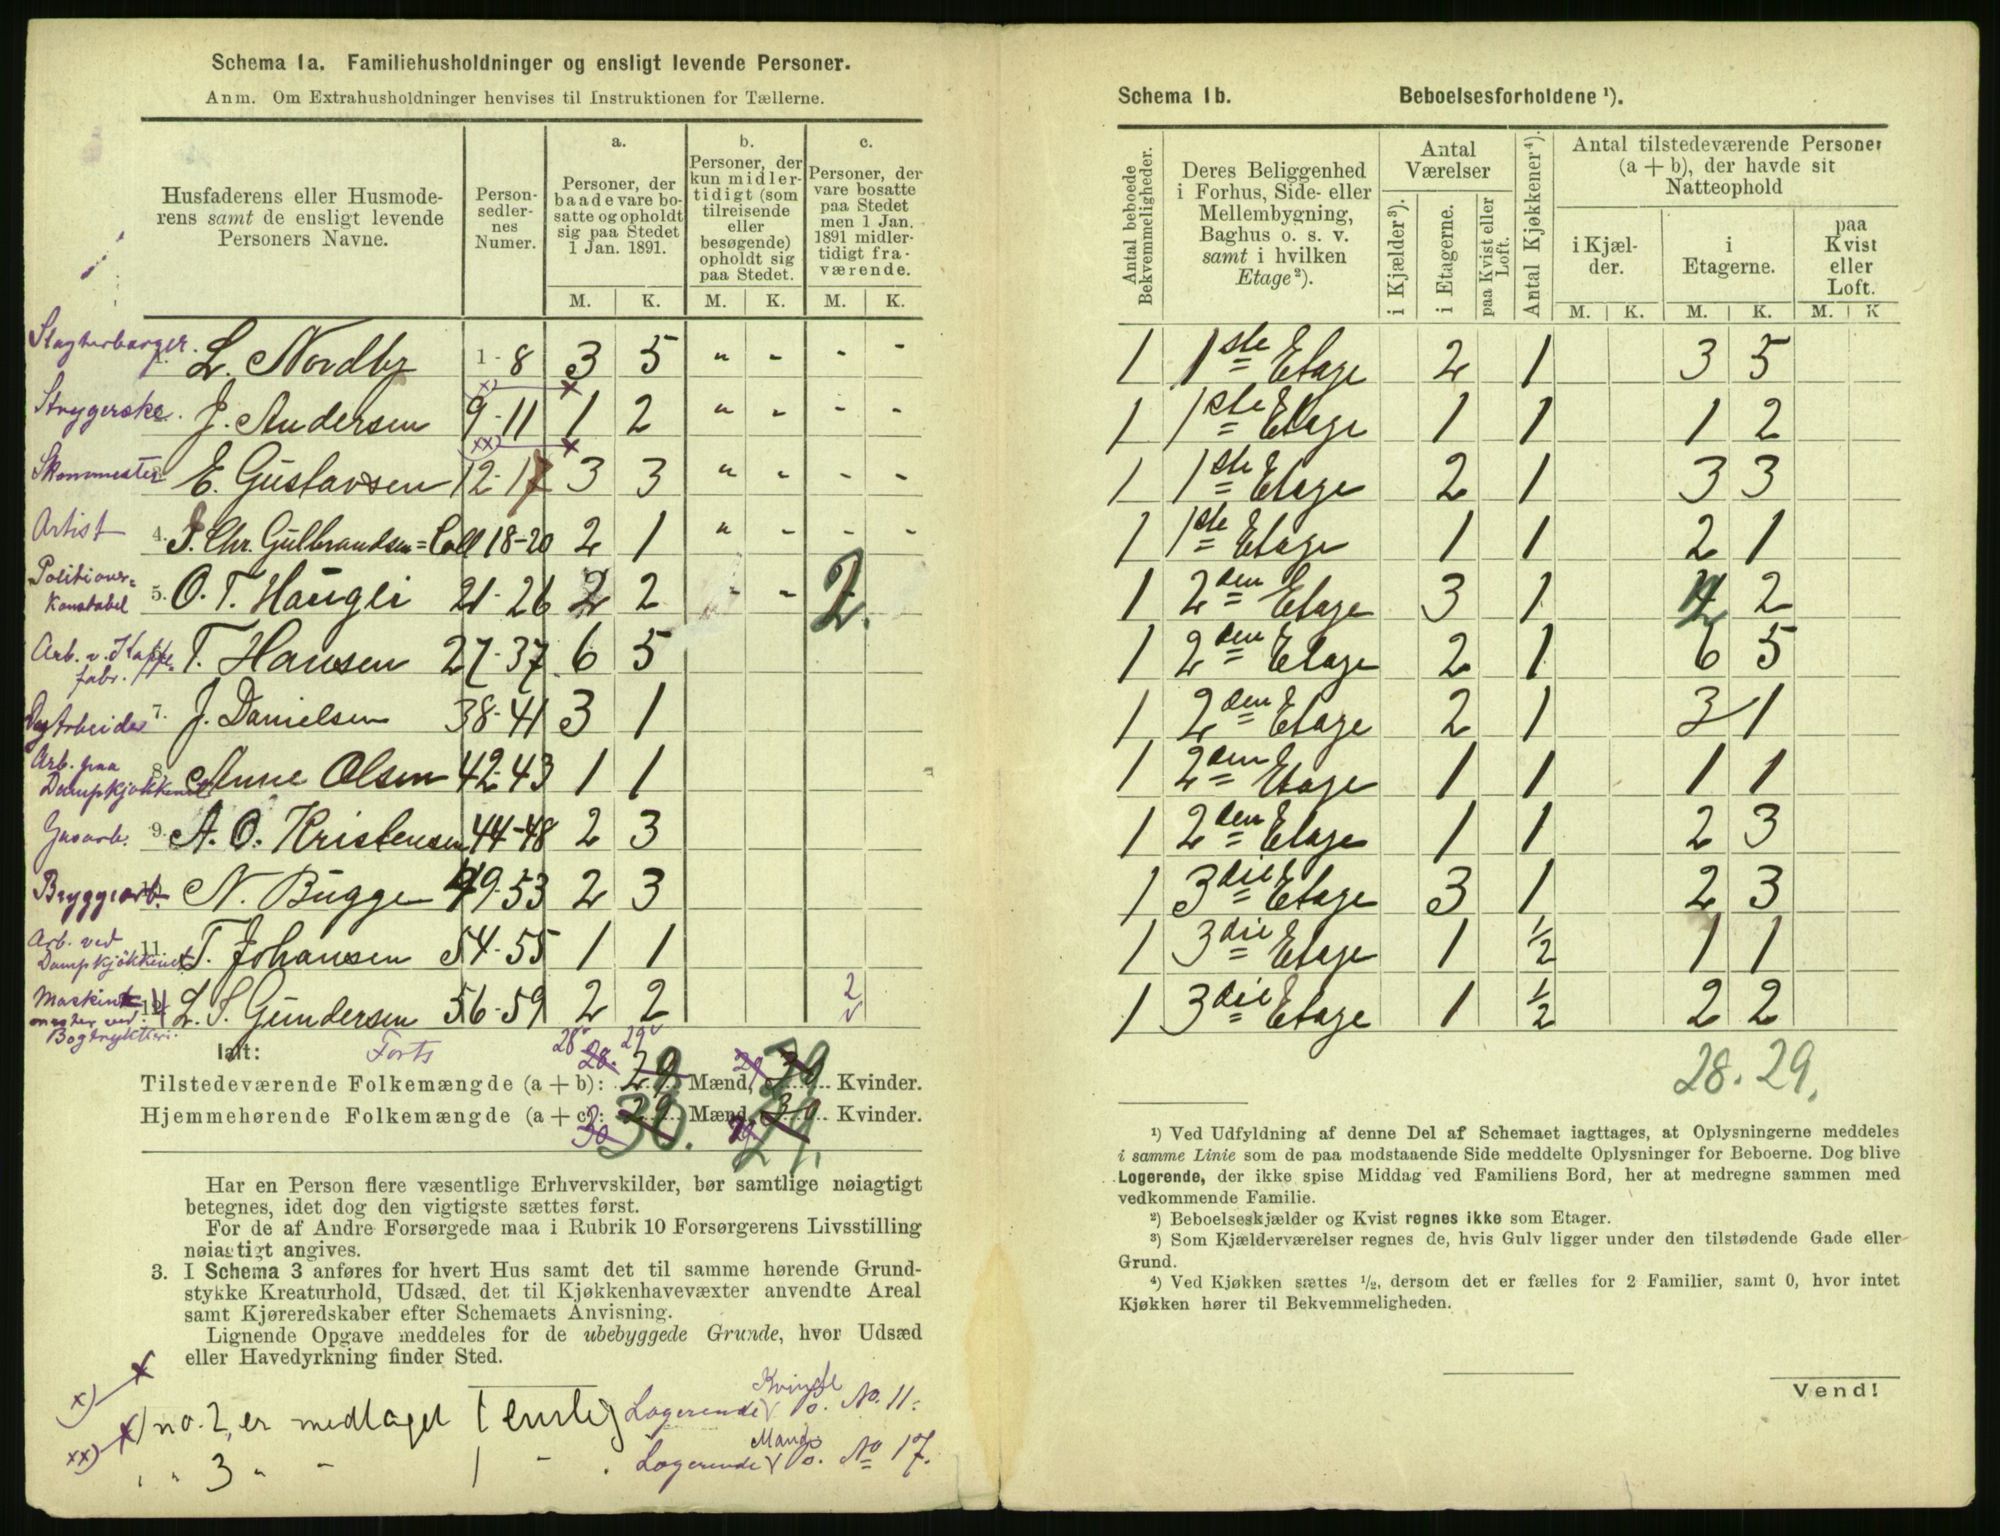 Schema 1a. Familiehusholdninger og ensligt levende Personer.
Anm. Om Extrahusholdninger henvises til Instruktionen for Tællerne.
Husfaderens eller Husmoderens samt de ensligt levende Personers Navne.
Personsedlernes Numer.
a. Personer, der baade vare bosatte og opholdt sig paa Stedet 1 Jan. 1891.
b. Personer, der kun midlertidigt (som tilreisende eller besøgende) opholdt sig paa Stedet.
c. Personer, der vare bosatte paa Stedet men 1 Jan. 1891 midlertidigt fraværende.
M. K. M. K. M. K.
Slagterborger. L. Nordby 1-8 3 5 " - - -
Strygerske. J. Andersen 9-11 1 2 " - - -
xx)
Skommester E. Gustavsen 12-17 3 3 " - - -
Artist 4. P. Chr. Gulbrandsen = Coll 18-20 2 1 " - - -
Politiover=
Konstabel 5. O. T. Haugli 21-26 2 2 - - 2.
Arb. v. Kappe
fabr. T. Hansen 27-37 6 5
Dagarbeider 7. J. Danielsen 38-41 3 1
Arb. paa
Dampkjøkkenet 8. Anne Olsen 42-43 1 1
Gasarb. 9. A. O. Kristensen 44-48 2 3
Bryggearb. N. Bugge 49-53 2 3
Arb. ved
Dampkjøkkenet 11. T. Johansen 54-55 1 1
Maskin
mester ved
Bogtrykkeri. 12. L. S. Gundersen 56-59 2 2 2
Ialt: Forts 28 29
Tilstedeværende Folkemængde (a + b): 29 Mænd, 29 Kvinder.
Hjemmehørende Folkemængde (a + c): 30. Mænd, 29. Kvinder.
Har en Person flere væsentlige Erhvervskilder, bør samtlige nøiagtigt
betegnes, idet dog den vigtigste sættes først.
For de af Andre Forsørgede maa i Rubrik 10 Forsørgerens Livsstilling
nøiagtigt angives.
3. I Schema 3 anføres for hvert Hus samt det til samme hørende Grund-
stykke Kreaturhold, Udsæd, det til Kjøkkenhavevæxter anvendte Areal
samt Kjøreredskaber efter Schemaets Anvisning.
Lignende Opgave meddeles for de ubebyggede Grunde, hvor Udsæd
eller Havedyrkning finder Sted.
x) no. 2, er medtaget 1 enslig Logerende Kvinde No. 11.
xx) " " 3 " - 1 - . Logerende Mand No 17.
Schema 1b. Beboelsesforholdene ¹).
Antal beboede Bekvemmeligheder.
Deres Beliggenhed i Forhus, Side- eller Mellembygning, Baghus o. s. v. samt i hvilken Etage²).
Antal Værelser
i Kjælder³).
i Etagerne.
paa Kvist eller Loft.
Antal Kjøkkener⁴).
Antal tilstedeværende Personer (a + b), der havde sit Natteophold
i Kjælder.
i Etagerne.
paa Kvist eller Loft.
M. K. M. K. M. K
1 1ste Etage 2 1 3 5
1 1ste Etage 1 1 1 2
1 1ste Etage 2 1 3 3
1 1ste Etage 1 1 2 1
1 2den Etage 3 1 2 2
1 2den Etage 2 1 6 5
1 2den Etage 2 1 3 1
1 2den Etage 1 1 1 1
1 2den Etage 1 1 2 3
1 3die Etage 3 1 2 3
1 3die Etage 1 1/2 1 1
1 3die Etage 1 1/2 2 2
28. 29.
¹) Ved Udfyldning af denne Del af Schemaet iagttages, at Oplysningerne meddeles
i samme Linie som de paa modstaaende Side meddelte Oplysninger for Beboerne. Dog blive
Logerende, der ikke spise Middag ved Familiens Bord, her at medregne sammen med
vedkommende Familie.
²) Beboelseskjælder og Kvist regnes ikke som Etager.
³) Som Kjælderværelser regnes de, hvis Gulv ligger under den tilstødende Gade eller
Grund.
⁴) Ved Kjøkken sættes ½, dersom det er fælles for 2 Familier, samt 0, hvor intet
Kjøkken hører til Bekvemmeligheden.
Vend!